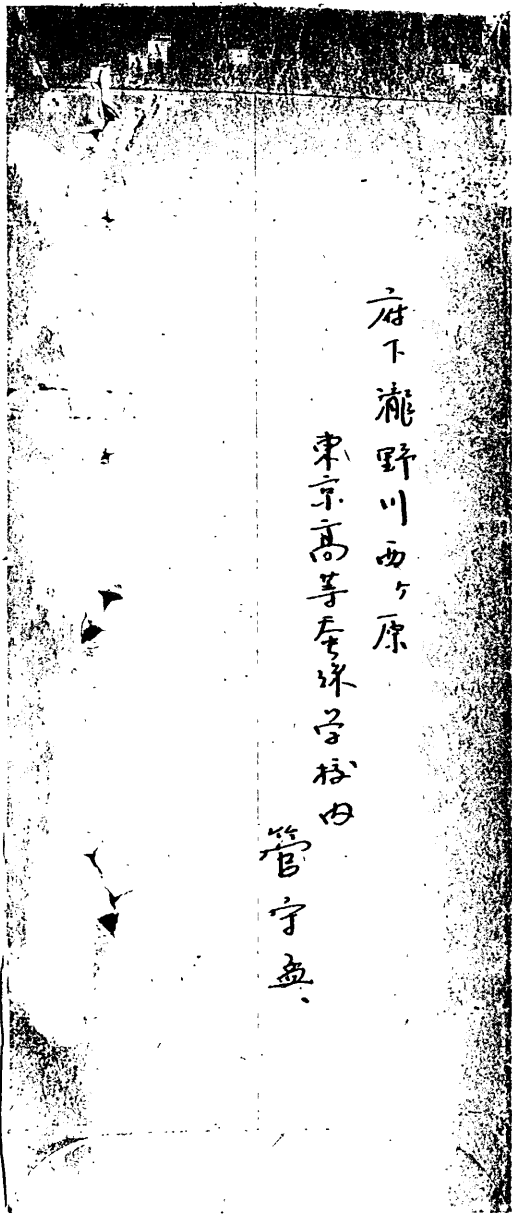 府下瀧野川西ヶ原
東京高等蚕糸学校内
管宇